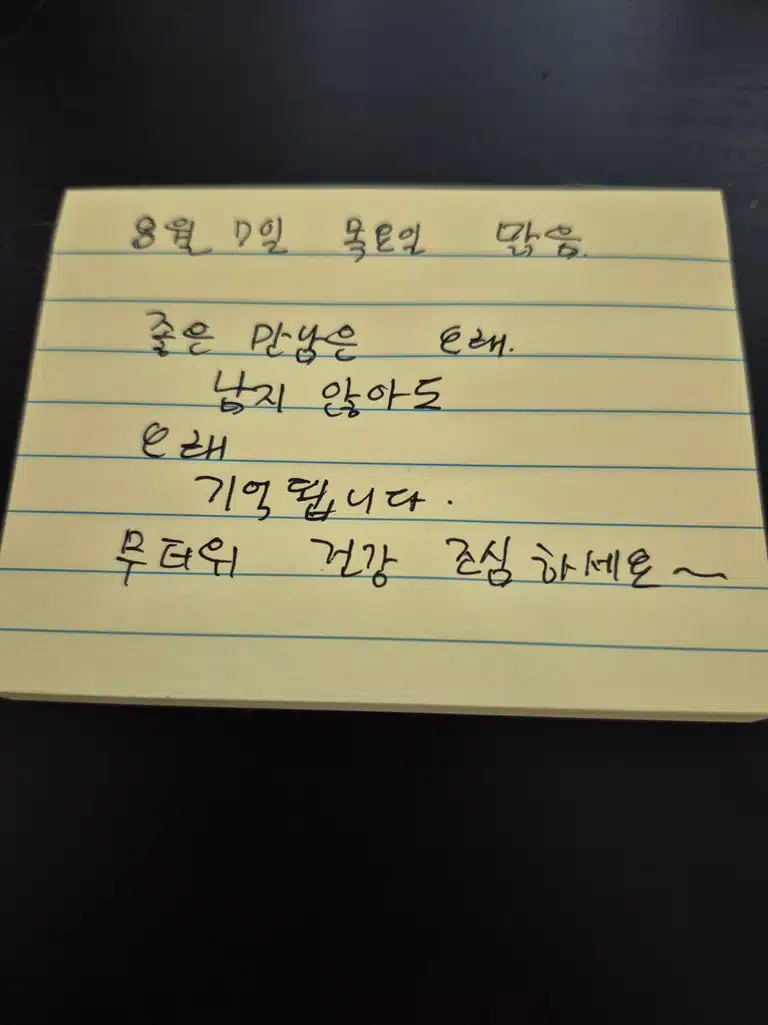 8월 7일 목요일 맑음.
좋은 만남은 오래.
남지 않아도
오래
기억됩니다.
무더위 건강 조심하세요~